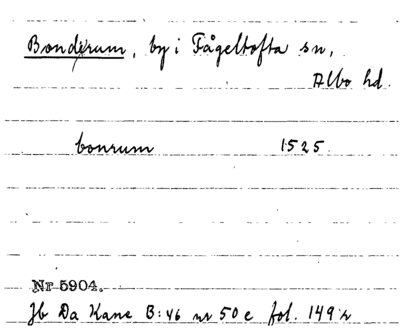 Bonderum, by i Fågeltofta sn,
Albo hd.
bonrum 1525.
Nr 5904.
Jb Da Kanc B:46 nr 50 c fol. 149 r